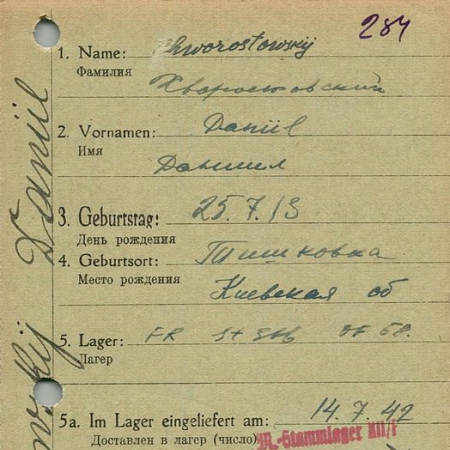 284
1. Name: Chworostowskij
Фамилия Хворостовский
2. Vornamen: Daniil
Имя Даниил
3. Geburtstag: 25.7.13
День рождения
4. Geburtsort: Тишковка
Место рождения Киевская об
5. Lager: FR St 366 OF 68.
Лагер
5a. Im Lager eingeliefert am: 14.7.42
Доставлен в лагер (число)
M.-Stammlager XII/F
Daniil